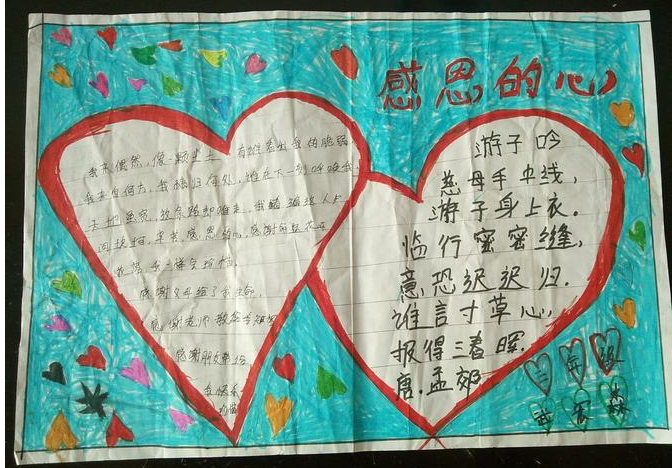 感恩的心
我来偶然,像一颗尘土 有谁看出我的脆弱
我来自何方,我情归何处,谁在下一刻呼唤我.
天地虽宽,这条路却难走,我看遍这人
间坎坷辛苦感恩的心,感谢
花落我一样会珍惜.
感谢父母给了我生命,
感谢老师教会我知识
感谢朋友
我快乐
游子吟
慈母手中线,
游子身上衣.
临行密密缝,
意恐迟迟归.
谁言寸草心,
报得三春晖.
唐.孟郊
三年级